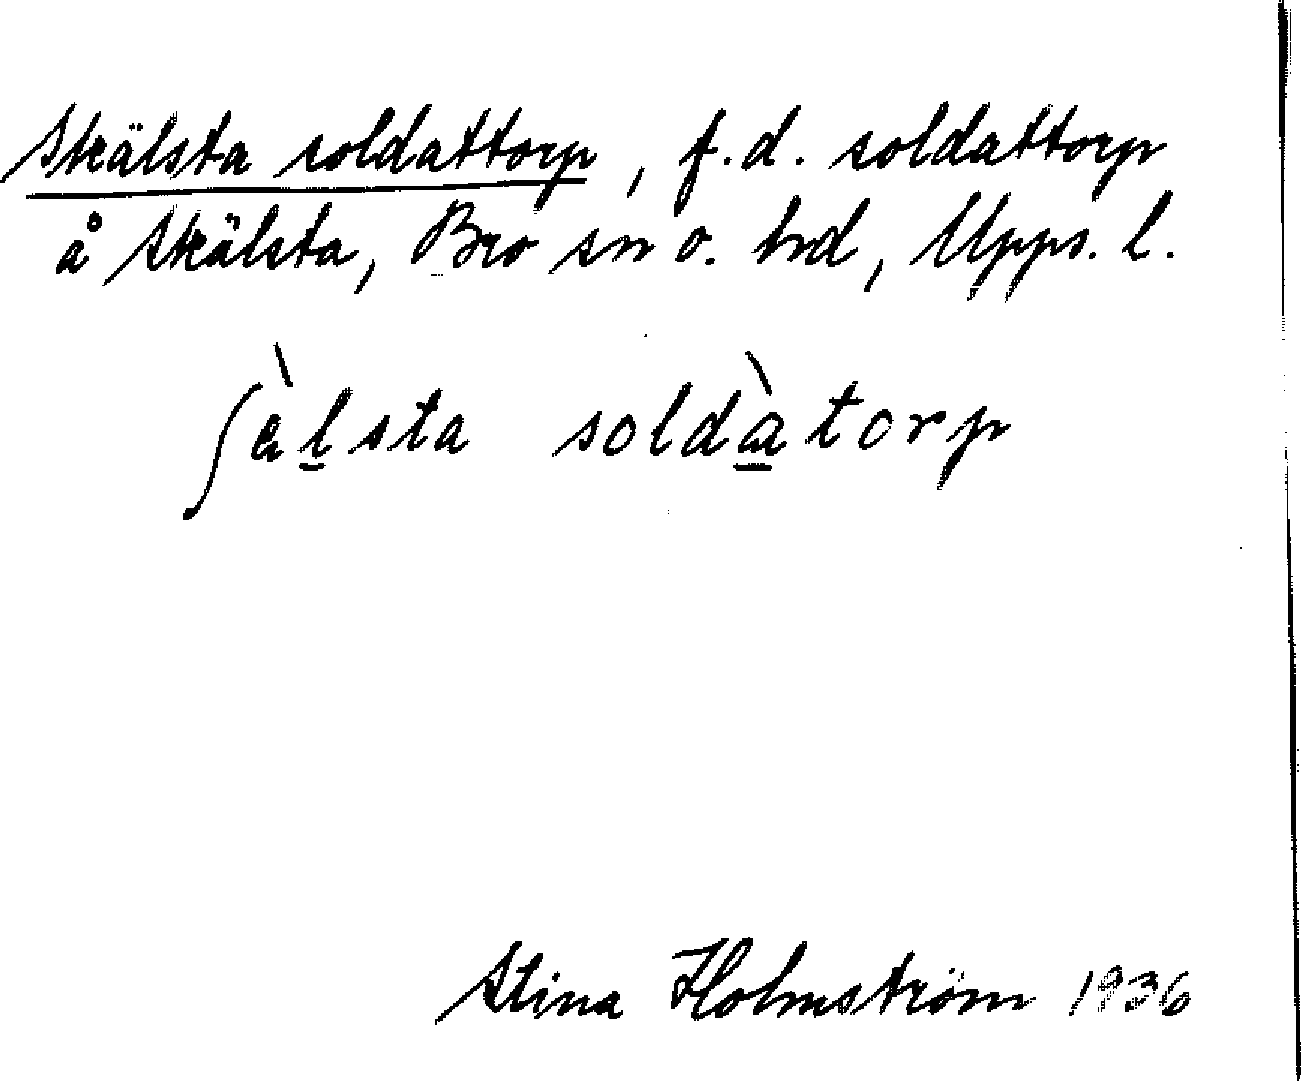 Skälsta soldattorp, f.d. soldattorp
å Skälsta, Bro sn o. hd, Upps. l.
ʃὰl̠sta soldὰ̠torp
Stina Holmström 1936